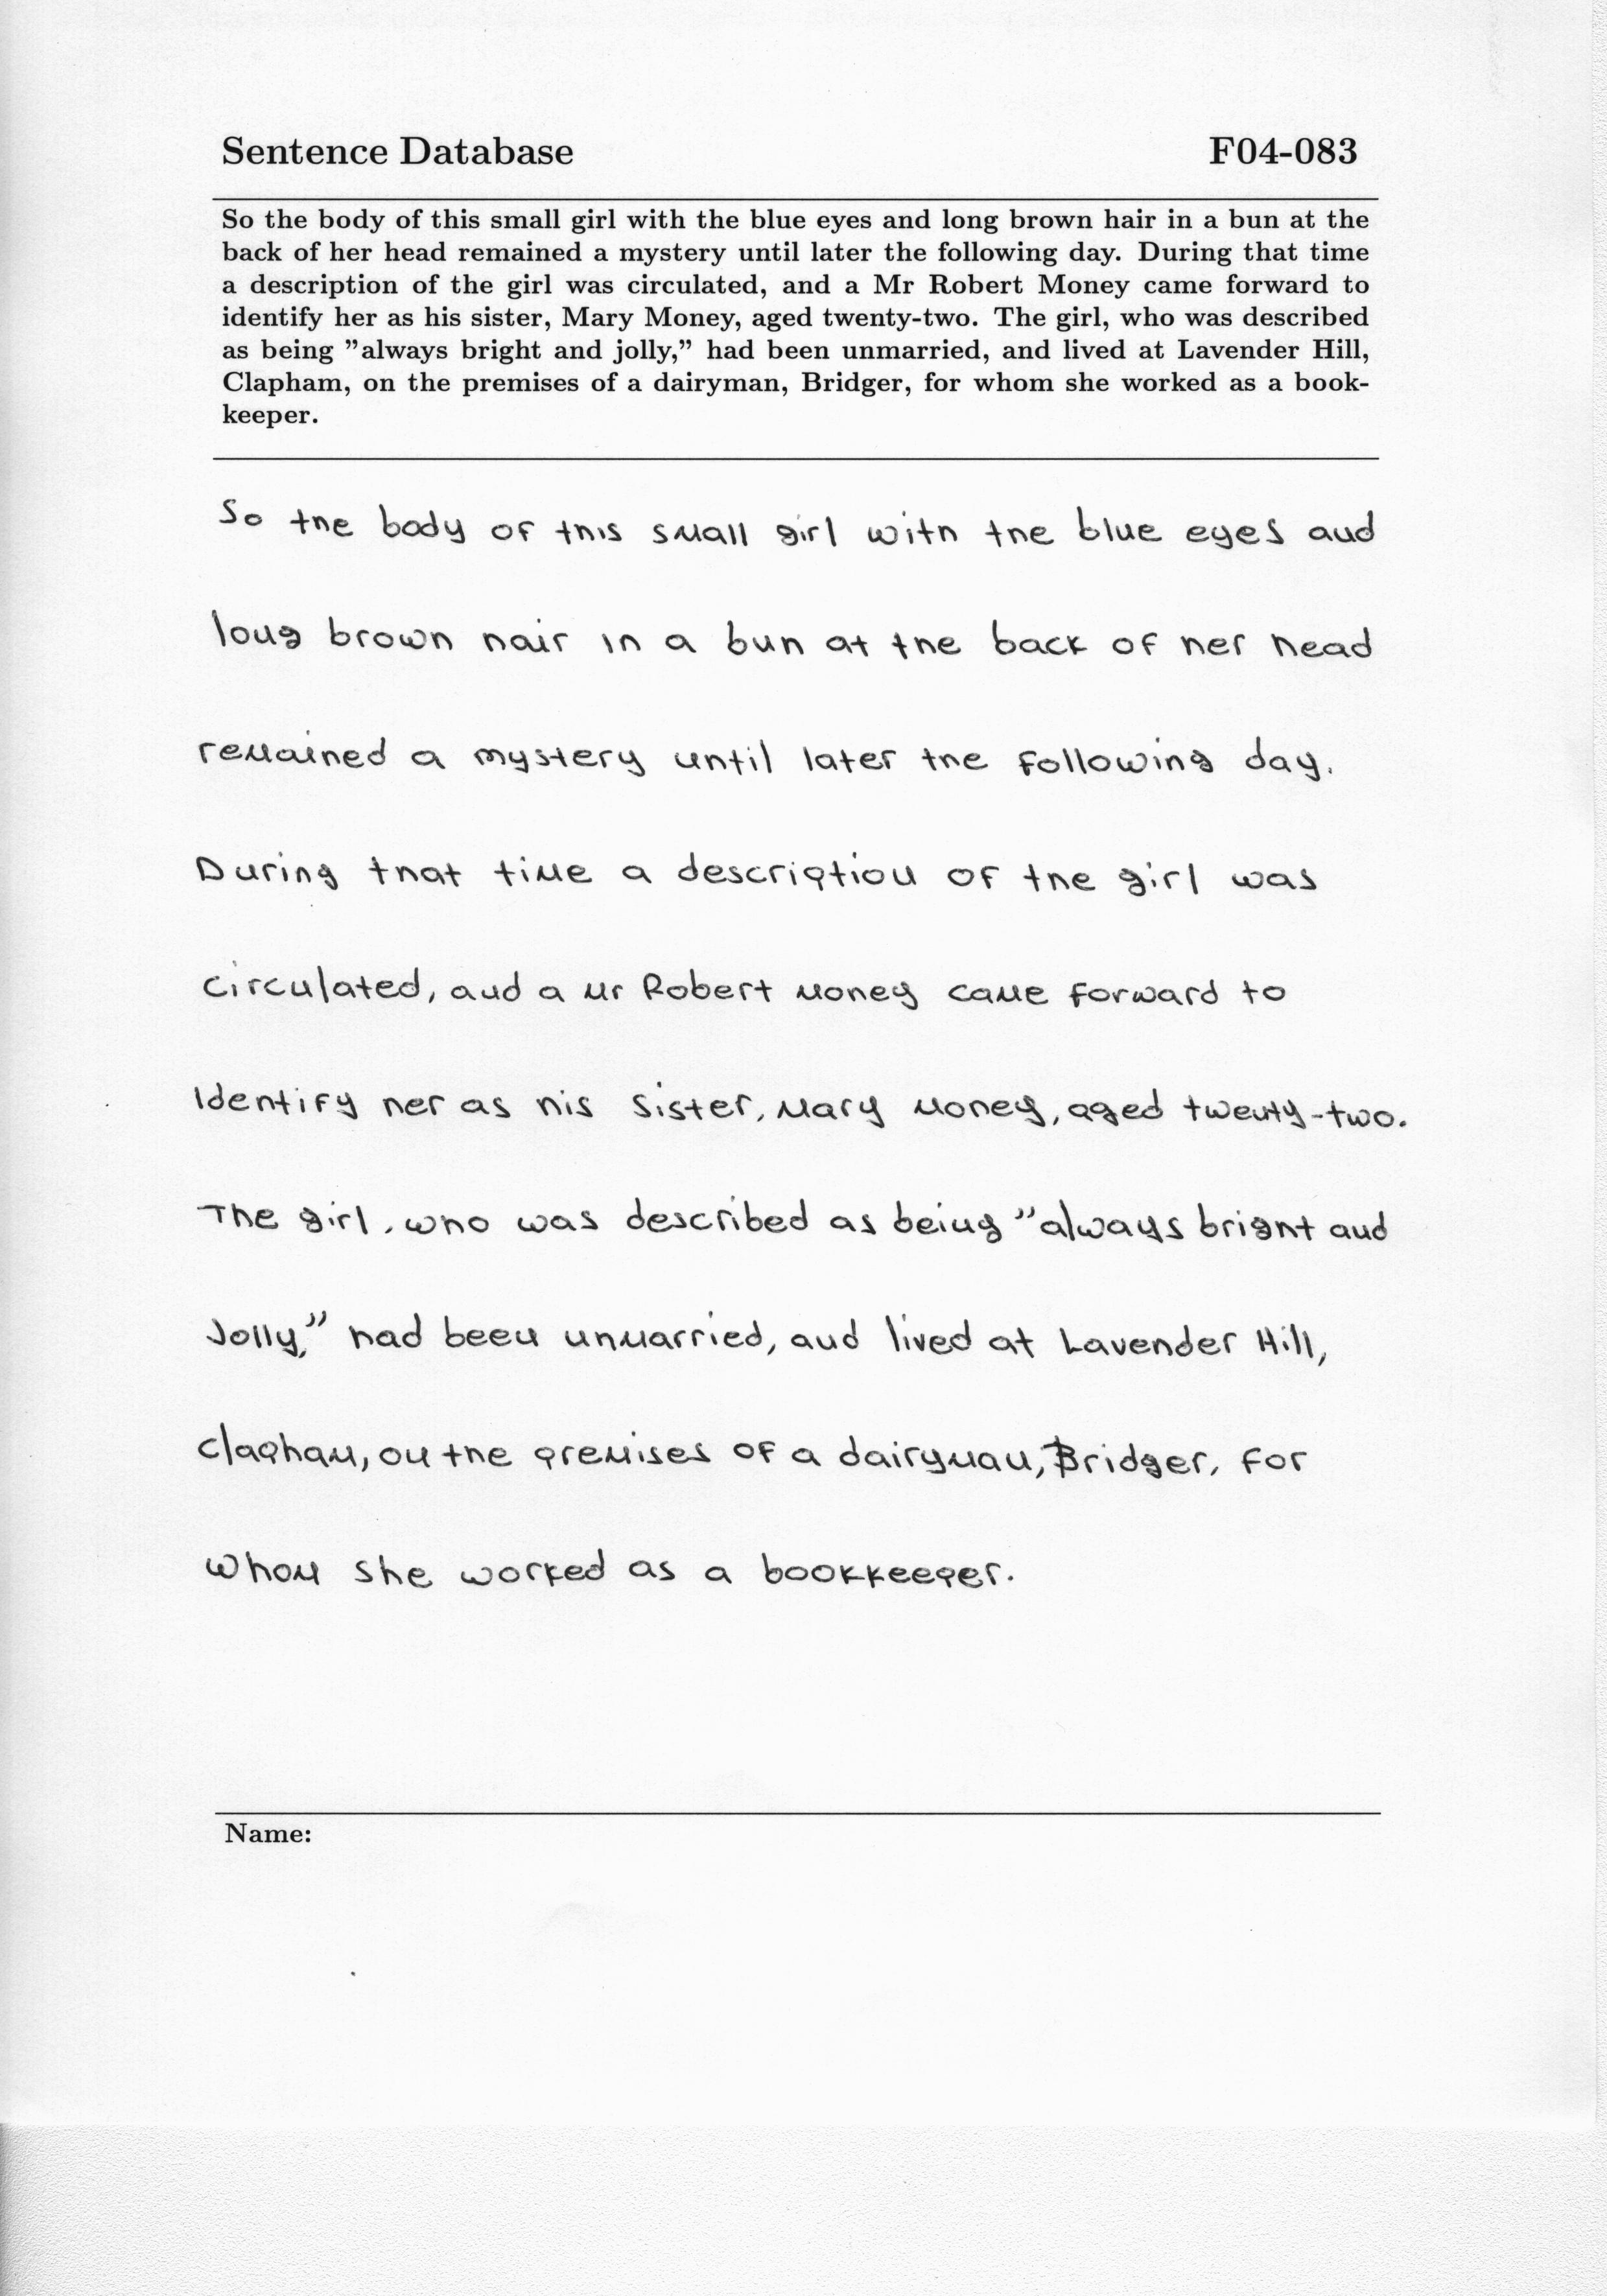 Sentence Database F04-083
So the body of this small girl with the blue eyes and long brown hair in a bun at the
back of her head remained a mystery until later the following day. During that time
a description of the girl was circulated, and a Mr Robert Money came forward to
identify her as his sister, Mary Money, aged twenty-two. The girl, who was described
as being ”always bright and jolly,” had been unmarried, and lived at Lavender Hill,
Clapham, on the premises of a dairyman, Bridger, for whom she worked as a book-
keeper.
So the body of this small girl with the blue eyes and
long brown hair in a bun at the back of her head
remained a mystery until later the following day.
During that time a description of the girl was
circulated, and a Mr Robert Money came forward to
identify her as his sister, Mary Money, aged twenty-two.
The girl, who was described as being ”always bright and
Jolly,” had been unmarried, and lived at Lavender Hill,
Clapham, on the premises of a dairyman, Bridger, for
whom she worked as a bookkeeper.
Name: